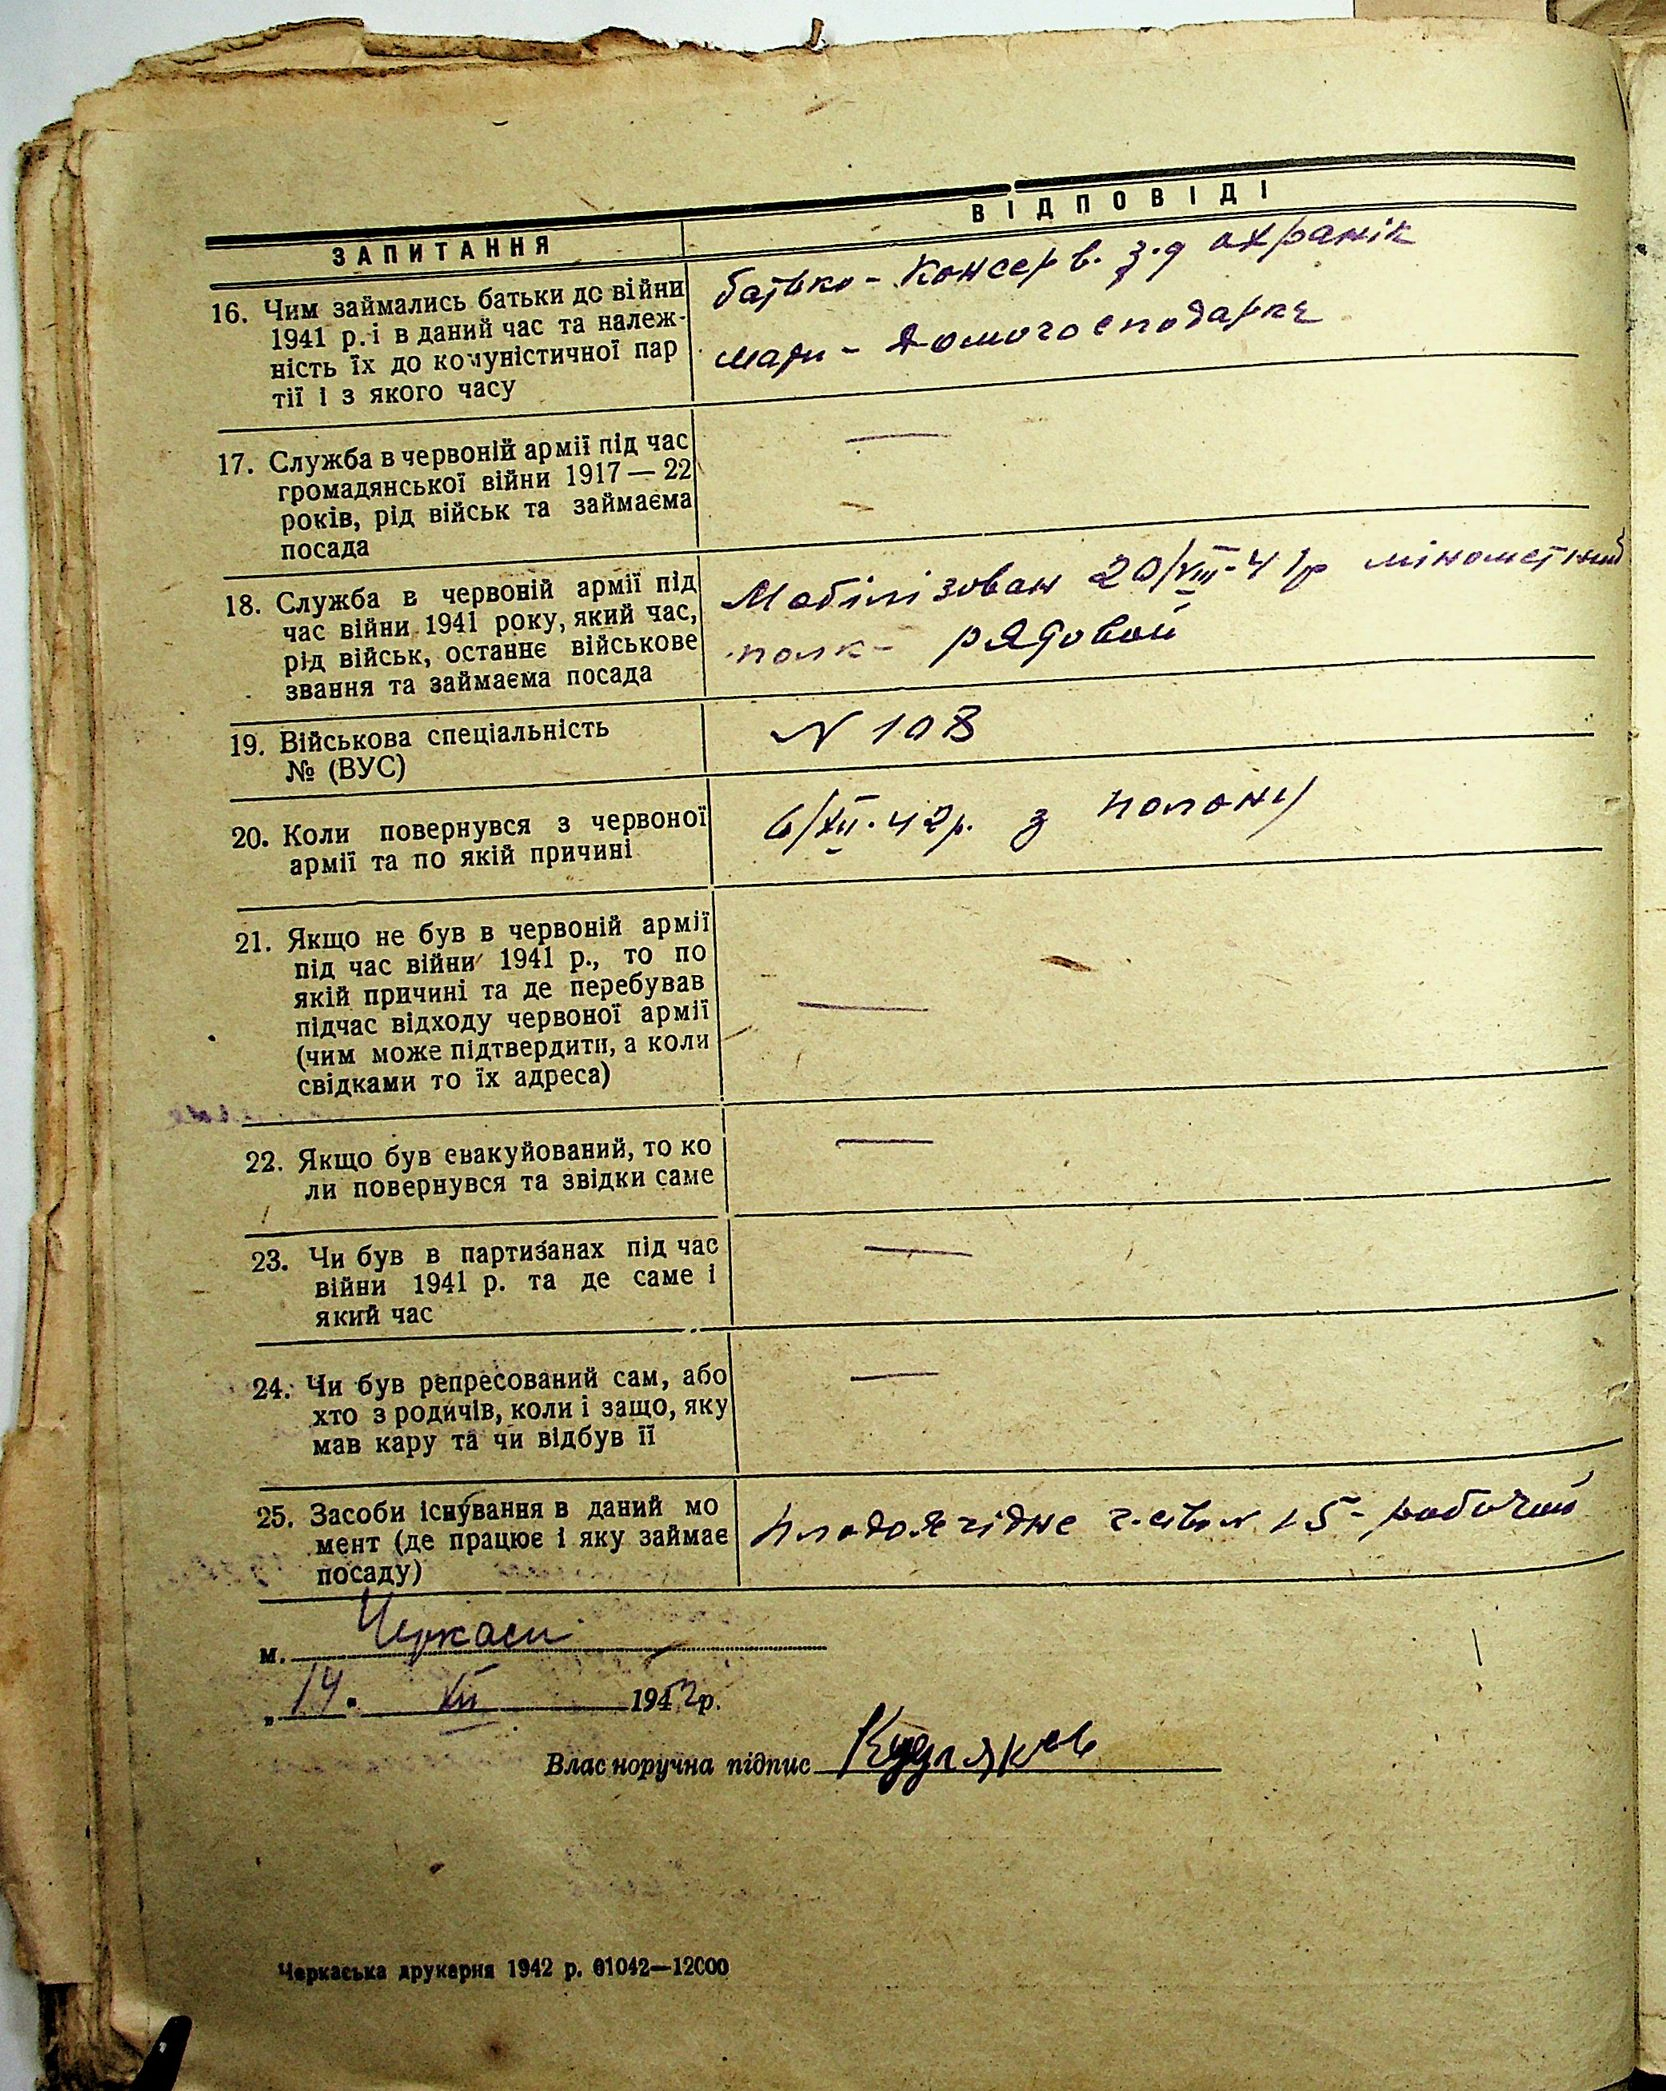 ЗАПИТАННЯ ВІДПОВІДІ
16. Чим займались батьки до війни
1941 р. і в даний час та належ-
ність їх до комуністичної пар
тії і з якого часу
батько - Консерв. з-д охранік
мати - домогосподарка
17. Служба в червоній армії під час
громадянської війни 1917 — 22
років, рід військ та займаєма
посада
—
18. Служба в червоній армії під
час війни 1941 року, який час,
рід військ, останнє військове
звання та займаєма посада
Мобілізован 20/VIII-41р мінометний
полк - рядовой
19. Військова спеціальність
№ (ВУС)
N 108
20. Коли повернувся з червоної
армії та по якій причині
6/XII.42р. з полону
21. Якщо не був в червоній армії
під час війни 1941 р., то по
якій причині та де перебував
підчас відходу червоної армії
(чим може підтвердити, а коли
свідками то їх адреса)
—
22. Якщо був евакуйований, то ко
ли повернувся та звідки саме
—
23. Чи був в партизанах під час
війни 1941 р. та де саме і
який час
—
24. Чи був репресований сам, або
хто з родичів, коли і защо, яку
мав кару та чи відбув її
—
25. Засоби існування в даний мо
мент (де працює і яку займає
посаду)
плодоягідне г-ство N 15 - рабочий
м. Черкаси
„ 14. XII 1942р.
Влас норучна підпис Кудляков
Черкаська друкарня 1942 р. 01042—12000